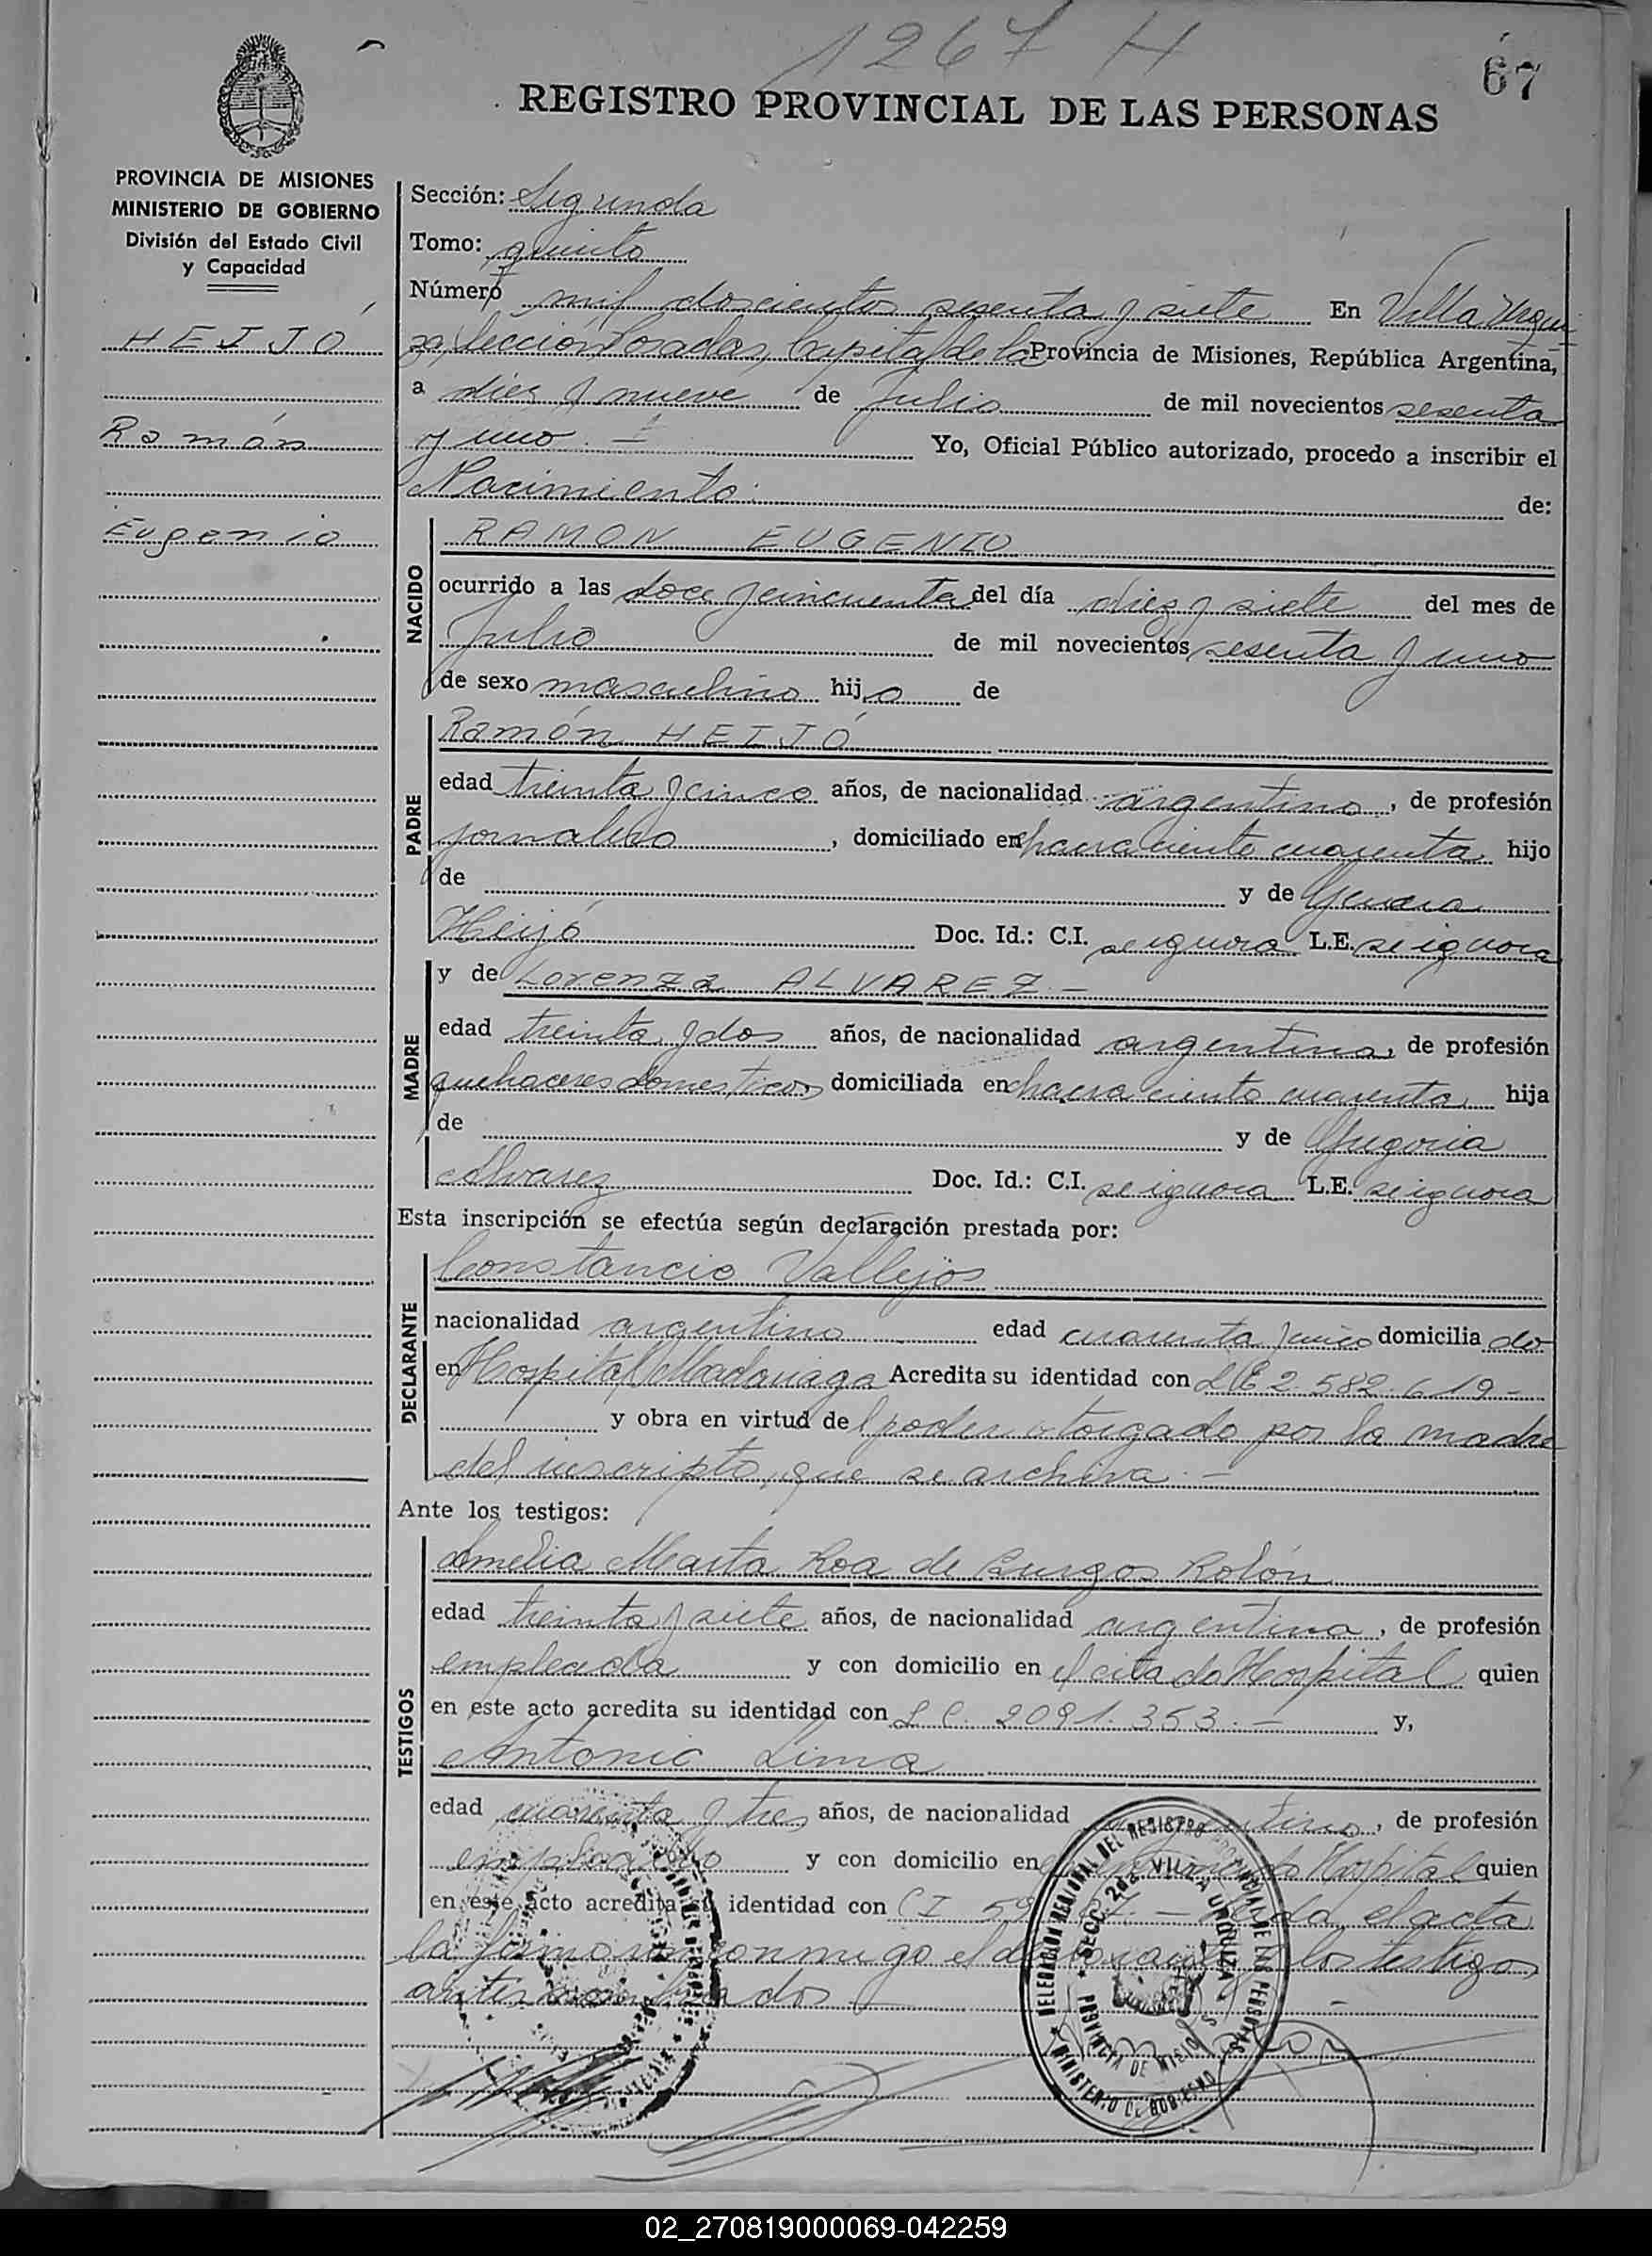 1267 H
67
REGISTRO PROVINCIAL DE LAS PERSONAS
PROVINCIA DE MISIONES
MINISTERIO DE GOBIERNO
División del Estado Civil
y Capacidad
HEIJÓ
Ramón
Eugenio
Sección: Segunda
Tomo: quinto
Número mil doscientos sesenta y siete En Villa Urqui
za, Sección Posadas, Capital de la Provincia de Misiones, República Argentina,
a diez y nueve de Julio de mil novecientos sesenta
y uno. - Yo, Oficial Público autorizado, procedo a inscribir el
Nacimiento de:
NACIDO
RAMON EUGENIO
ocurrido a las doce y cincuenta del día diez y siete del mes de
Julio de mil novecientos sesenta y uno
de sexo masculino hijo de
PADRE
Ramón HEIJÓ
edad treinta y cinco años, de nacionalidad argentino, de profesión
jornalero, domiciliado en chacra ciento cuarenta hijo
de y de Genara
Heijó Doc. Id.: C.I. se ignora L.E. se ignora
MADRE
y de Lorenza ALVAREZ -
edad treinta y dos años, de nacionalidad argentina, de profesión
quehaceres domesticos, domiciliada en chacra ciento cuarenta hija
de y de Gregoria
Alvarez Doc. Id.: C.I. se ignora L.E. se ignora
Esta inscripción se efectúa según declaración prestada por:
DECLARANTE
Constancio Vallejos
nacionalidad argentino edad cuarenta y cinco domiciliado
en Hospital Madariaga Acredita su identidad con L E 2.582.619 -
y obra en virtud del poder otorgado por la madre
del inscripto, que se archiva. -
Ante los testigos:
TESTIGOS
Amelia Marta Roa de Burgos Rolón
edad treinta y siete años, de nacionalidad argentina, de profesión
empleada y con domicilio en el citado Hospital quien
en este acto acredita su identidad con L C. 2091.353. - y,
Antonio Lima
edad cuarenta y tres años, de nacionalidad argentino, de profesión
empleado y con domicilio en Hospital quien
en este acto acredita su identidad con C I el acta
la firman conmigo el declarante y los testigos
antes nombrados
DELEGACION REGIONAL DEL REGISTRO PROVINCIAL DE LAS PERSONAS
SECC. 2da. VILLA URQUIZA
PROVINCIA DE MISIONES
MINISTERIO DE GOBIERNO
02_270819000069-042259